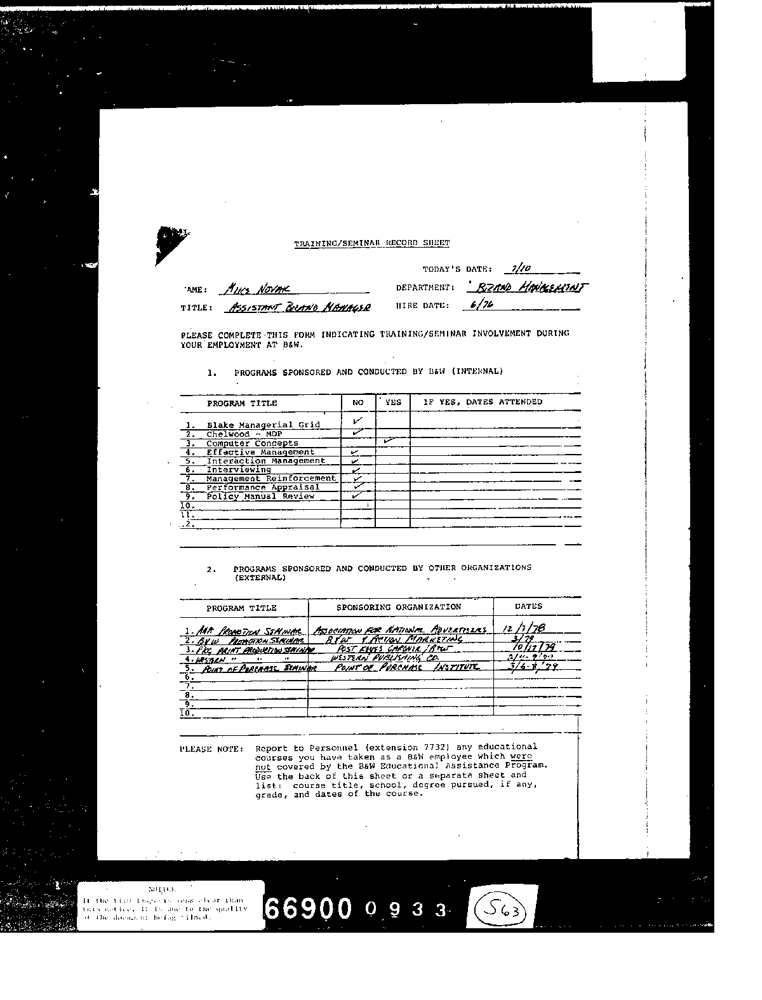 TRAINING/SEMINAR RECORD SHEET
TODAY'S DATE: 7/10
AME: MIKE NOVAK DEPARTMENT: BRAND MANAGEMENT
TITLE: ASSISTANT BRAND MANAGER HIRE DATE: 6/76
PLEASE COMPLETE THIS FORM INDICATING TRAINING/SEMINAR INVOLVEMENT DURING
YOUR EMPLOYMENT AT B&W.
1. PROGRAMS SPONSORED AND CONDUCTED BY B&W (INTERNAL)
PROGRAM TITLE NO YES IF YES, DATES ATTENDED
1. Blake Managerial Grid ✓
2. Chelwood - MDP ✓
3. Computer Concepts ✓
4. Effective Management ✓
5. Interaction Management ✓
6. Interviewing ✓
7. Management Reinforcement ✓
8. Performance Appraisal ✓
9. Policy Manual Review ✓
10.
11.
2.
2. PROGRAMS SPONSORED AND CONDUCTED BY OTHER ORGANIZATIONS
(EXTERNAL)
PROGRAM TITLE SPONSORING ORGANIZATION DATES
1. PROMOTION SEMINAR ASSOCIATION FOR NATIONAL ADVERTISERS 12/7/78
2. B&W PROMOTION SEMINAR B&W & ACTION MARKETING 3/79
3. PKG PRINT PRODUCTION SEMINAR POST KEYES /B&W 10/17/79
4. WESTERN " " " WESTERN PUBLISHING CO.
5. POINT OF PURCHASE SEMINAR POINT OF PURCHASE INSTITUTE 3/6-8/79
6.
7.
8.
9.
10.
PLEASE NOTE: Report to Personnel (extension 7732) any educational
courses you have taken as a B&W employee which were
not covered by the B&W Educational Assistance Program.
Use the back of this sheet or a separate sheet and
list: course title, school, degree pursued, if any,
grade, and dates of the course.
NOTICE
If the film image is less clear than
this notice, it is due to the quality
of the document being filmed.
66900 0933
563